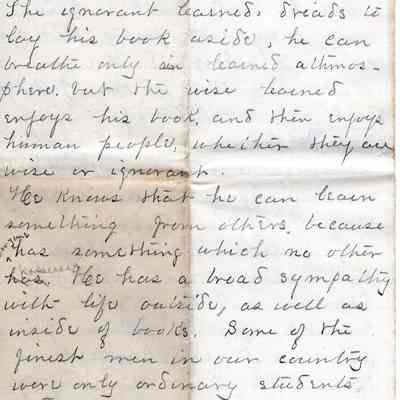 The ignorant learned, dreads to
lay his book aside, he can
breathe only in learned athmos-
phere. but the wise learned
enjoys his book, and then enjoys
human people, whether they are
wise or ignorant.
He knows that he can learn
something from others. because
has something which no other
has. He has a broad sympathy
with life outside, as well as
inside of books. Some of the
finest men in our country
were only ordinary students